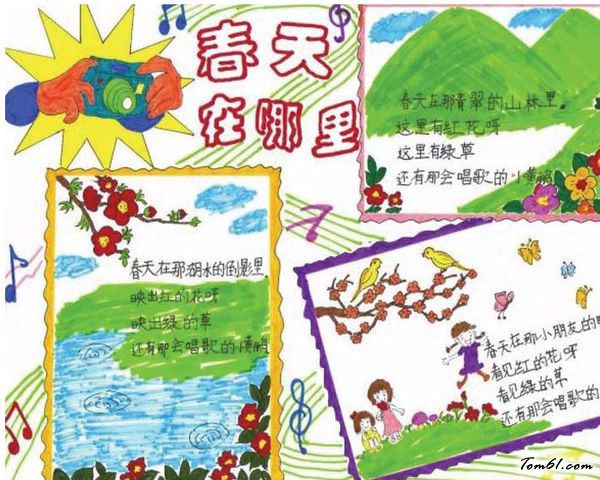 春天
在哪里
春天在那青翠的山林里
这里有红花呀
这里有绿草
还有那会唱歌的小黄鹂
春天在那湖水的倒影里
映出红的花呀
映出绿的草
还有那会唱歌的小黄鹂
春天在那小朋友的眼
看见红的花呀
看见绿的草
还有那会唱歌的
Tom61.com